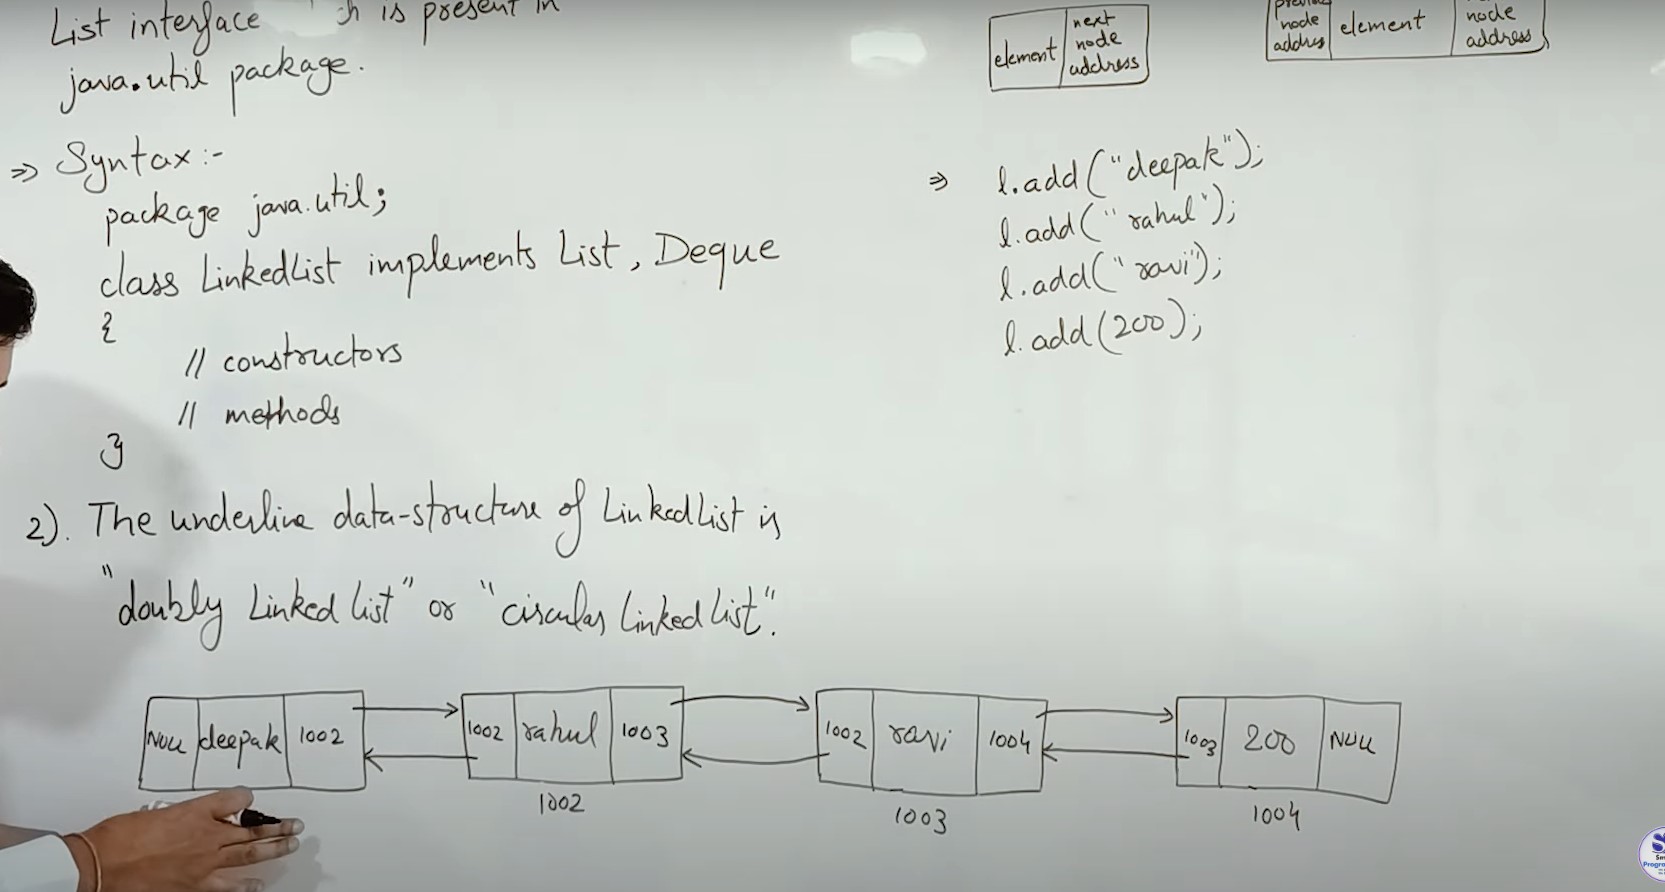 List interface is present in
java.util package.
⇒ Syntax:-
package java.util;
class LinkedList implements List, Deque
{
// constructors
// methods
}
2). The underline data-structure of LinkedList is
"doubly Linked list" or "circular linked list".
element
next
node
address
node
addres
element
node
address
⇒ l.add("deepak");
l.add("rahul");
l.add("ravi");
l.add(200);
NULL deepak 1002
1002 rahul 1003
1002 ravi 1004
1003 200 NULL
1002
1003
1004